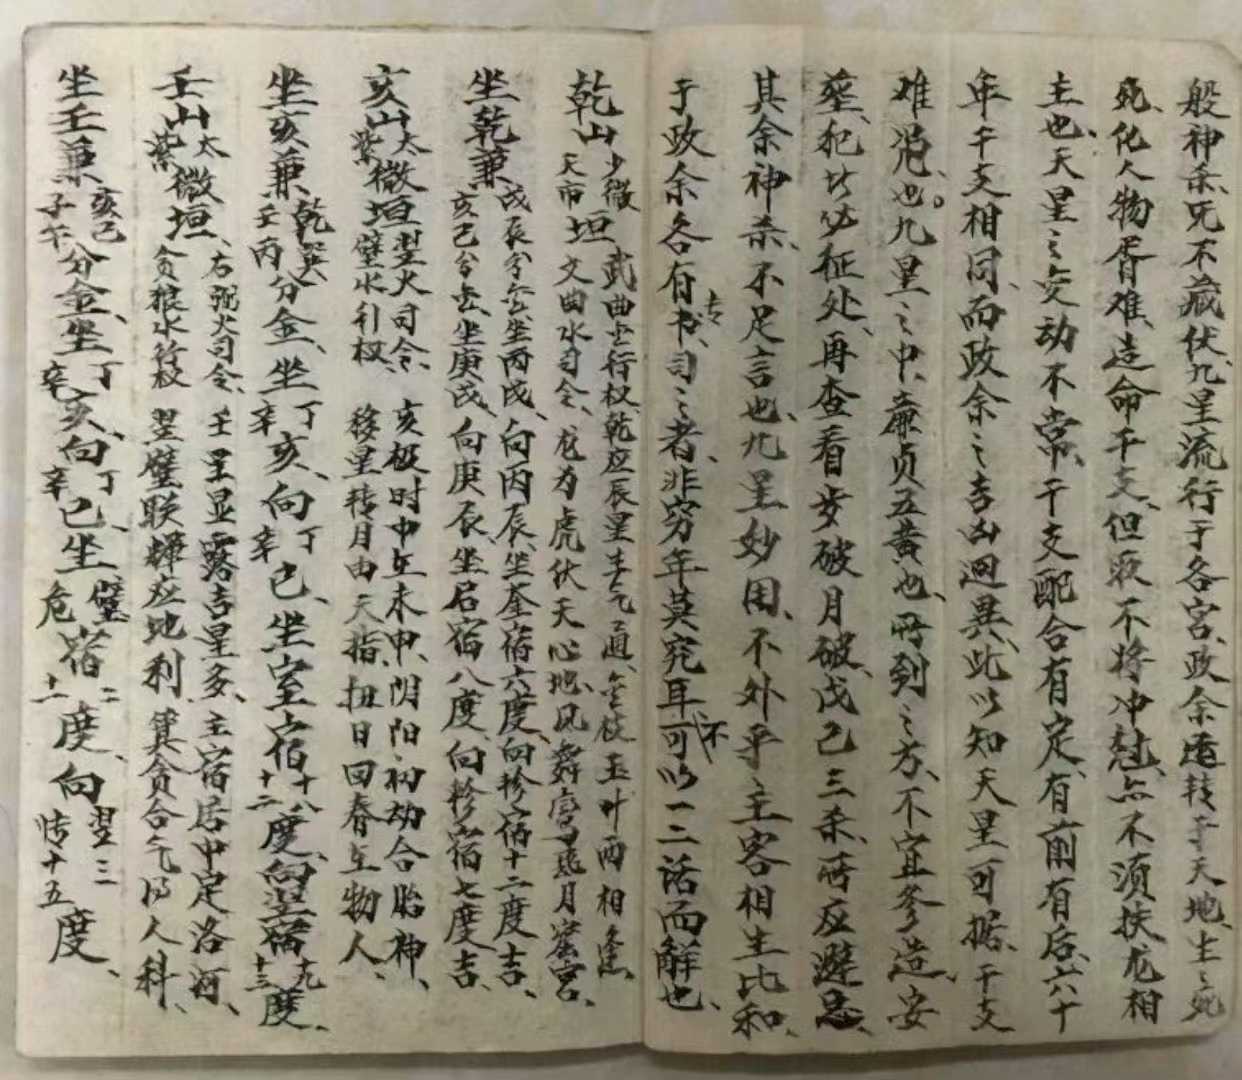 般神杀、咒不藏伏、九星流行于各宫、政余运转于天地、生之死
死、化人物屑难、造命干支、但取不将冲怼、亦不须扶龙相
主也、天星之变动不常、干支配合有定、有前有后、六十
年干支相同、而政余之吉凶迥異、此以知天星可据、干支
难混也。九星之中、廉贞五黄也、所到之方、不宜参造、安
葬、犯其必征处、再查看岁破月破、戊己三杀、所应避忌、
其余神杀、不足言也、九星妙用、不外乎主客相生比和、
于政余各有专书、司之者、非穷年莫究耳、不可以一二话而解也、
乾山 少微 天市 垣 武曲金行权、乾应辰星生气通、金枝玉叶两相逢、
文曲水司令、龙为虎伏天心地、风舞弯弓丹蜜宫、
坐乾兼 戌辰分金、坐丙戌、向丙辰、坐奎宿六度、向轸宿十二度吉、
亥己分金、坐庚戌、向庚辰、坐君宿八度、向轸宿七度吉、
亥山 太 紫 微垣 翌火司令、 亥极时中立未申、阴阳初动合胎神、
璧水行权、 移星转月由天指、扭日回春立物人、
坐亥兼 乾巽 壬丙 分金、坐 丁 辛 亥、向 丁 辛 己、坐室宿 十八 十二 度、向翌宿 九 十三 度、
壬山 太 紫 微垣、 右弼火司令、 壬星显露吉星多、主宿居中定洛河、
贪狼水行权 翌璧联辉应地利 箕贪合气得人科、
坐壬兼 亥己 子午 分金、坐 丁 辛 亥、向 丁 辛 己、坐 璧 危 宿 二 十一 度、向 翌三 张十五 度、